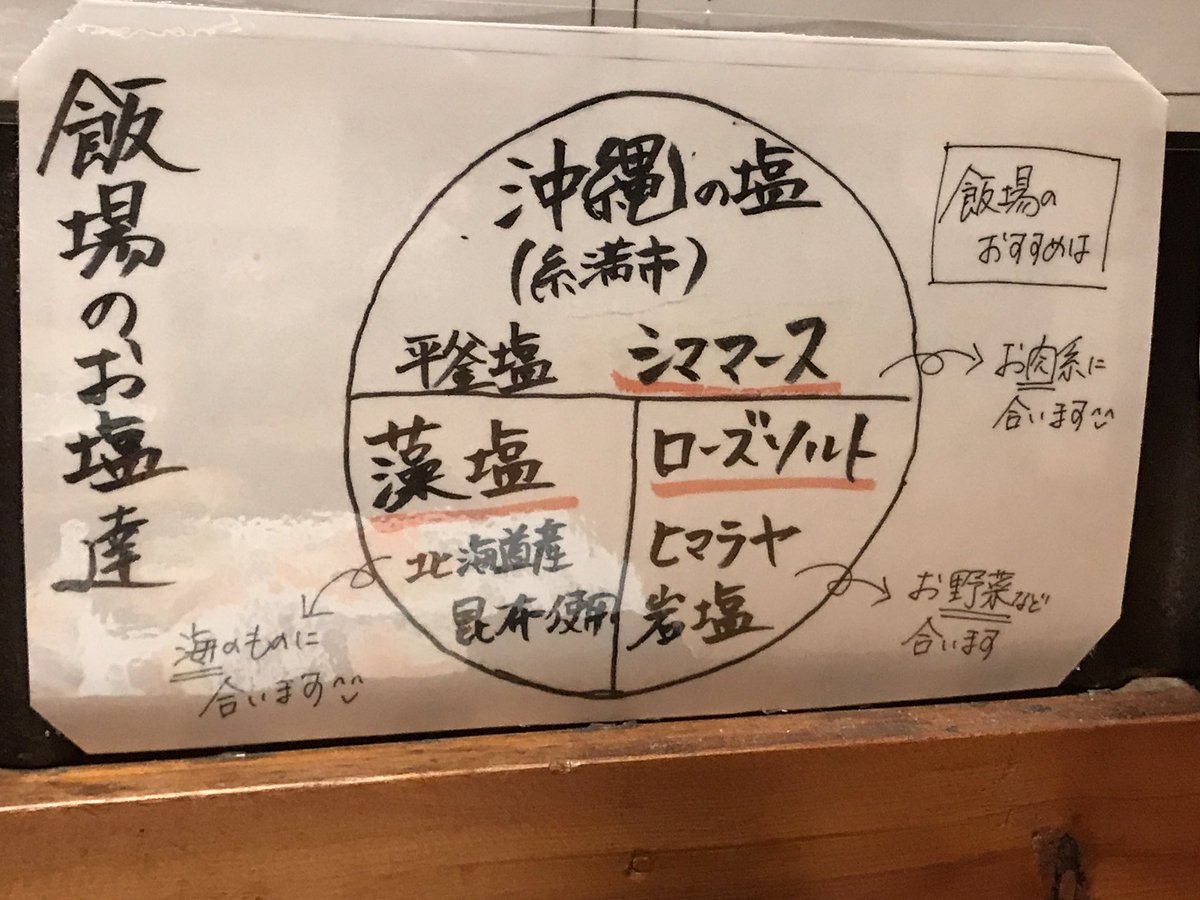 飯場のお塩達
沖縄の塩
(糸満市)
平釜塩 シママース
藻塩
北海道産
昆布使用
ローズソルト
ヒマラヤ
岩塩
飯場の
おすすめは
お肉系に
合います^^
お野菜など
合います
海のものに
合います^^